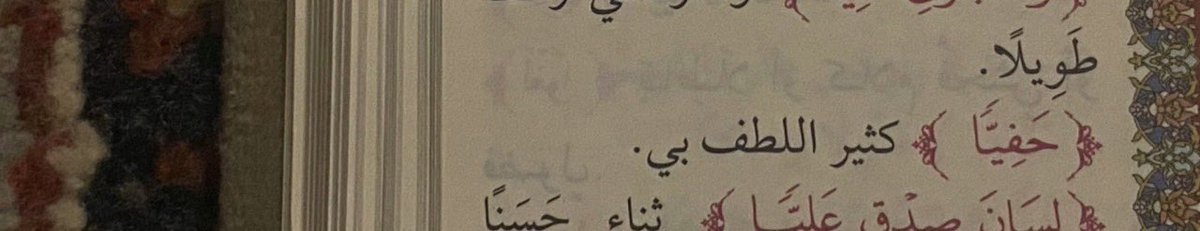 طَوِيلًا.
﴿حَفِيًّا﴾ كثير اللطف بي.
﴿لِسَانَ صِدْقٍ عَلِيًّا﴾ ثناء حَسَنًا